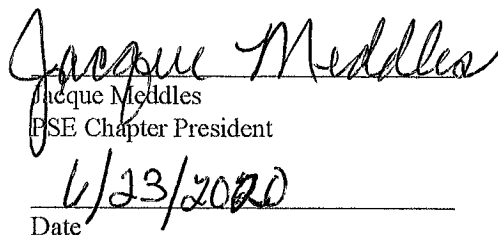 Jacque Meddles
Jacque Meddles
PSE Chapter President
6/23/2020
Date